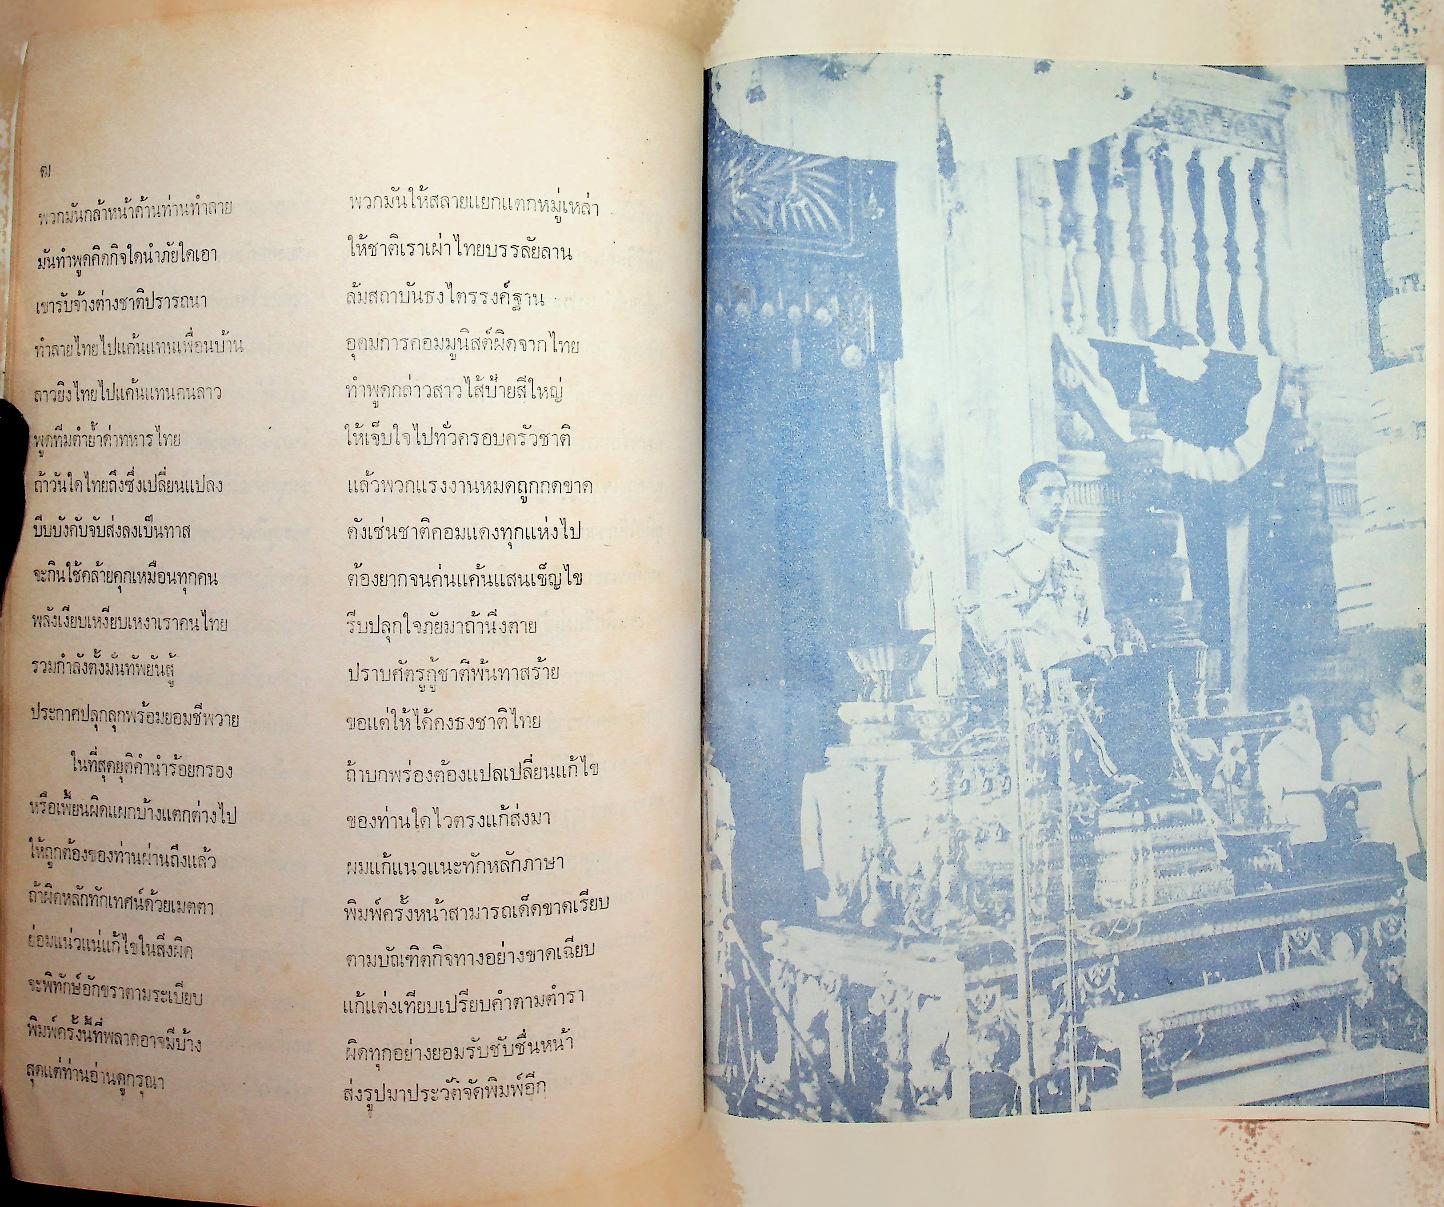 ฒ
พวกมันกล้าหน้าด้านท่านทำลาย พวกมันให้สลายแยกแตกหมู่เหล่า
มันทำพูดคิดกิจใดนำภัยใดเอา ให้ชาติเราเผ่าไทยบรรลัยลาน
เขารับจ้างต่างชาติปรารถนา ล้มสถาบันธงไตรรงค์ฐาน
ทำลายไทยไปแค้นแทนเพื่อนบ้าน อุดมการคอมมูนิสต์ผิดจากไทย
ลาวยิงไทยไปแค้นแทนคนลาว ทำพูดกล่าวสาวไส้ป้ายสีใหญ่
พูดทีมตำย้ำค่าทหารไทย ให้เจ็บใจไปทั่วครอบครัวชาติ
ถ้าวันใดไทยถึงซึ่งเปลี่ยนแปลง แล้วพวกแรงงานหมดถูกกดขาด
บีบบังคับจับส่งลงเป็นทาส ดังเช่นชาติคอมแดงทุกแห่งไป
จะกินใช้คล้ายคุกเหมือนทุกคน ต้องยากจนค่นแค้นแสนเข็ญไข
พลังเงียบเหงียบเหงาเราคนไทย รีบปลุกใจภัยมาถ้านิ่งตาย
รวมกำลังตั้งมั่นทัพยันสู้ ปราบศัตรูกู้ชาติพ้นทาสร้าย
ประกาศปลุกลุกพร้อมยอมชีพวาย ขอแต่ให้ได้คงธงชาติไทย
ในที่สุดยุติคำนำร้อยกรอง ถ้าบกพร่องต้องแปลเปลี่ยนแก้ไข
หรือเพี้ยนผิดแผกบ้างแตกต่างไป ของท่านใดไวตรงแก้ส่งมา
ให้ถูกต้องของท่านผ่านถึงแล้ว ผมแก้แนวแนะทักหลักภาษา
ถ้าผิดหลักทักเทศน์ด้วยเมตตา พิมพ์ครั้งหน้าสามารถเด็ดขาดเรียบ
ย่อมแน่วแน่แก้ไขในสิ่งผิด ตามบัณฑิตกิจทางอย่างขาดเฉียบ
จะพิทักษ์อักขราตามระเบียบ แก้แต่งเทียบเปรียบคำตามตำรา
พิมพ์ครั้งนี้ที่พลาดอาจมีบ้าง ผิดทุกอย่างยอมรับชับชื่นหน้า
สุดแต่ท่านอ่านดูกรุณา ส่งรูปมาประวัติจัดพิมพ์อีก